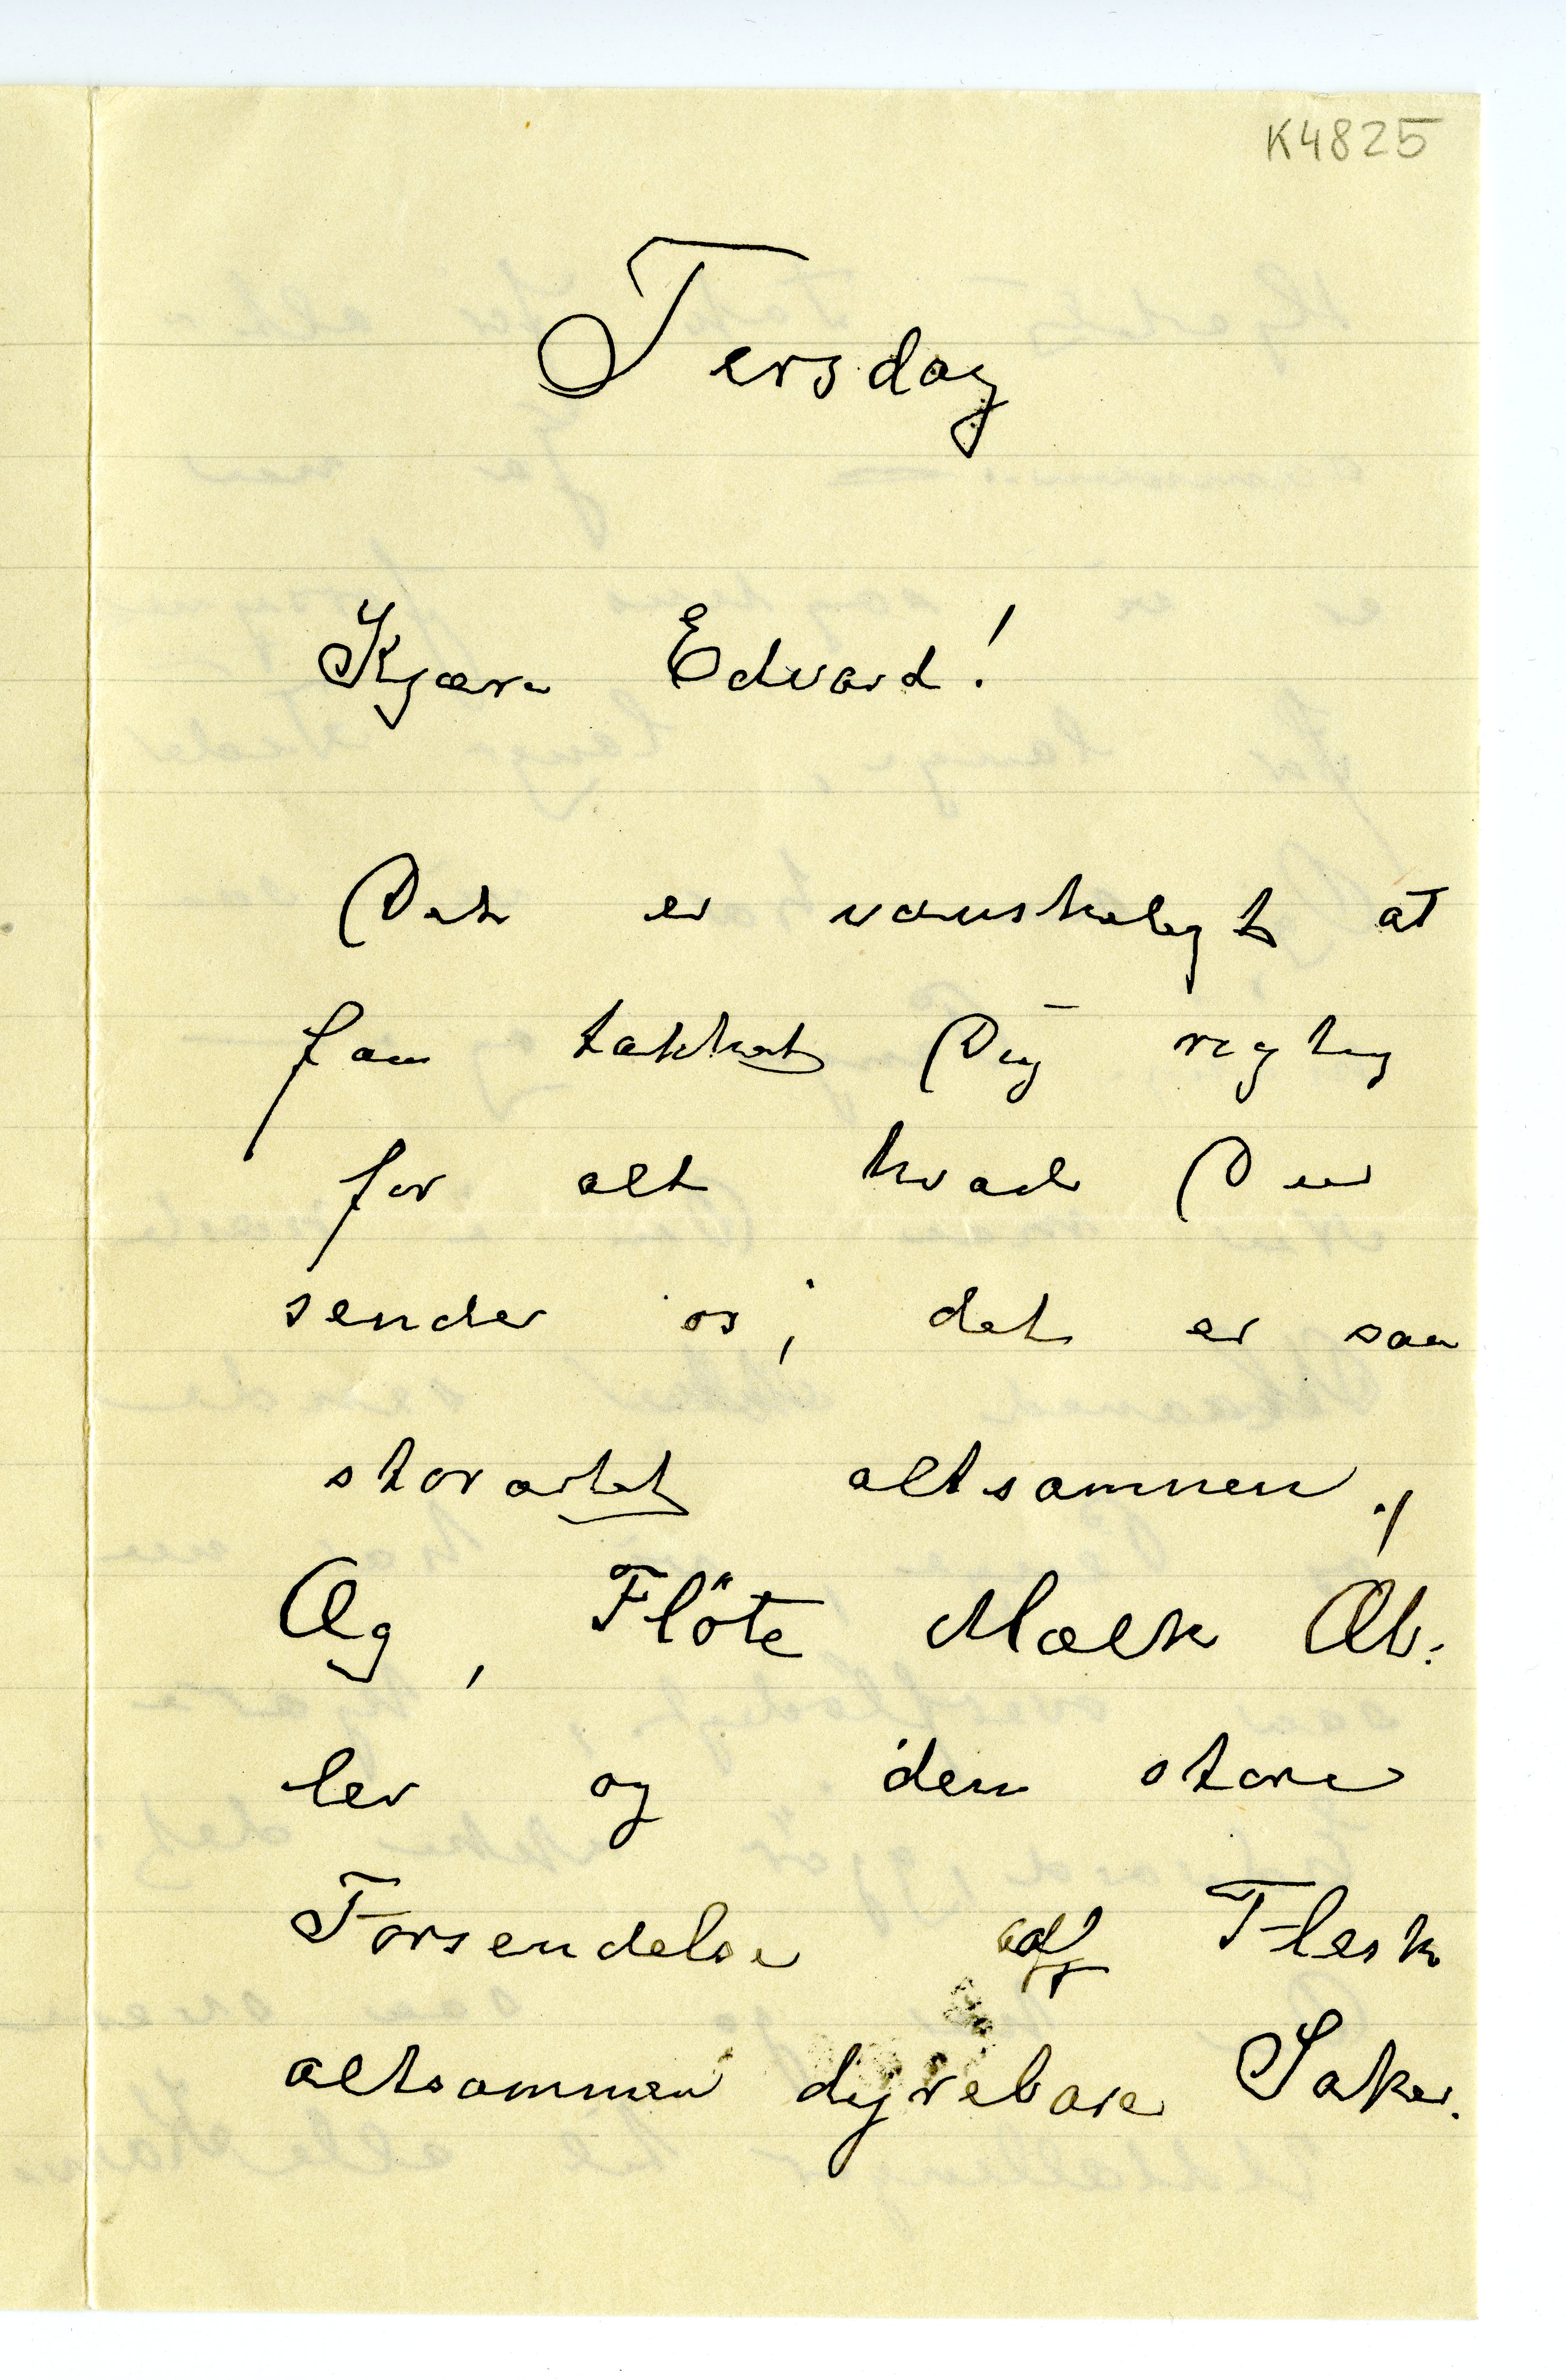 K4825
Tersdag
Kjære Edvard!
Det er vanskeligt at
faa takket Dig rigtig
for alt hvad Du
sender os, det er saa
storartet altsammen,
Æg, Flöte Mælk Æb:
ler og den store
Forsendelse af Flesk
altsammen dyrebare Saker.